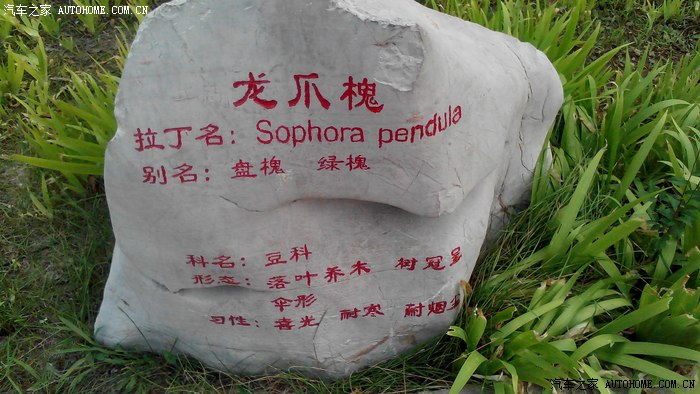 汽车之家 AUTOHOME.COM.CN
龙爪槐
拉丁名：Sophora pendula
别名：盘槐 绿槐
科名：豆科
形态：落叶乔木 树冠呈
伞形
习性：喜光 耐寒 耐烟尘
汽车之家 AUTOHOME.COM.CN